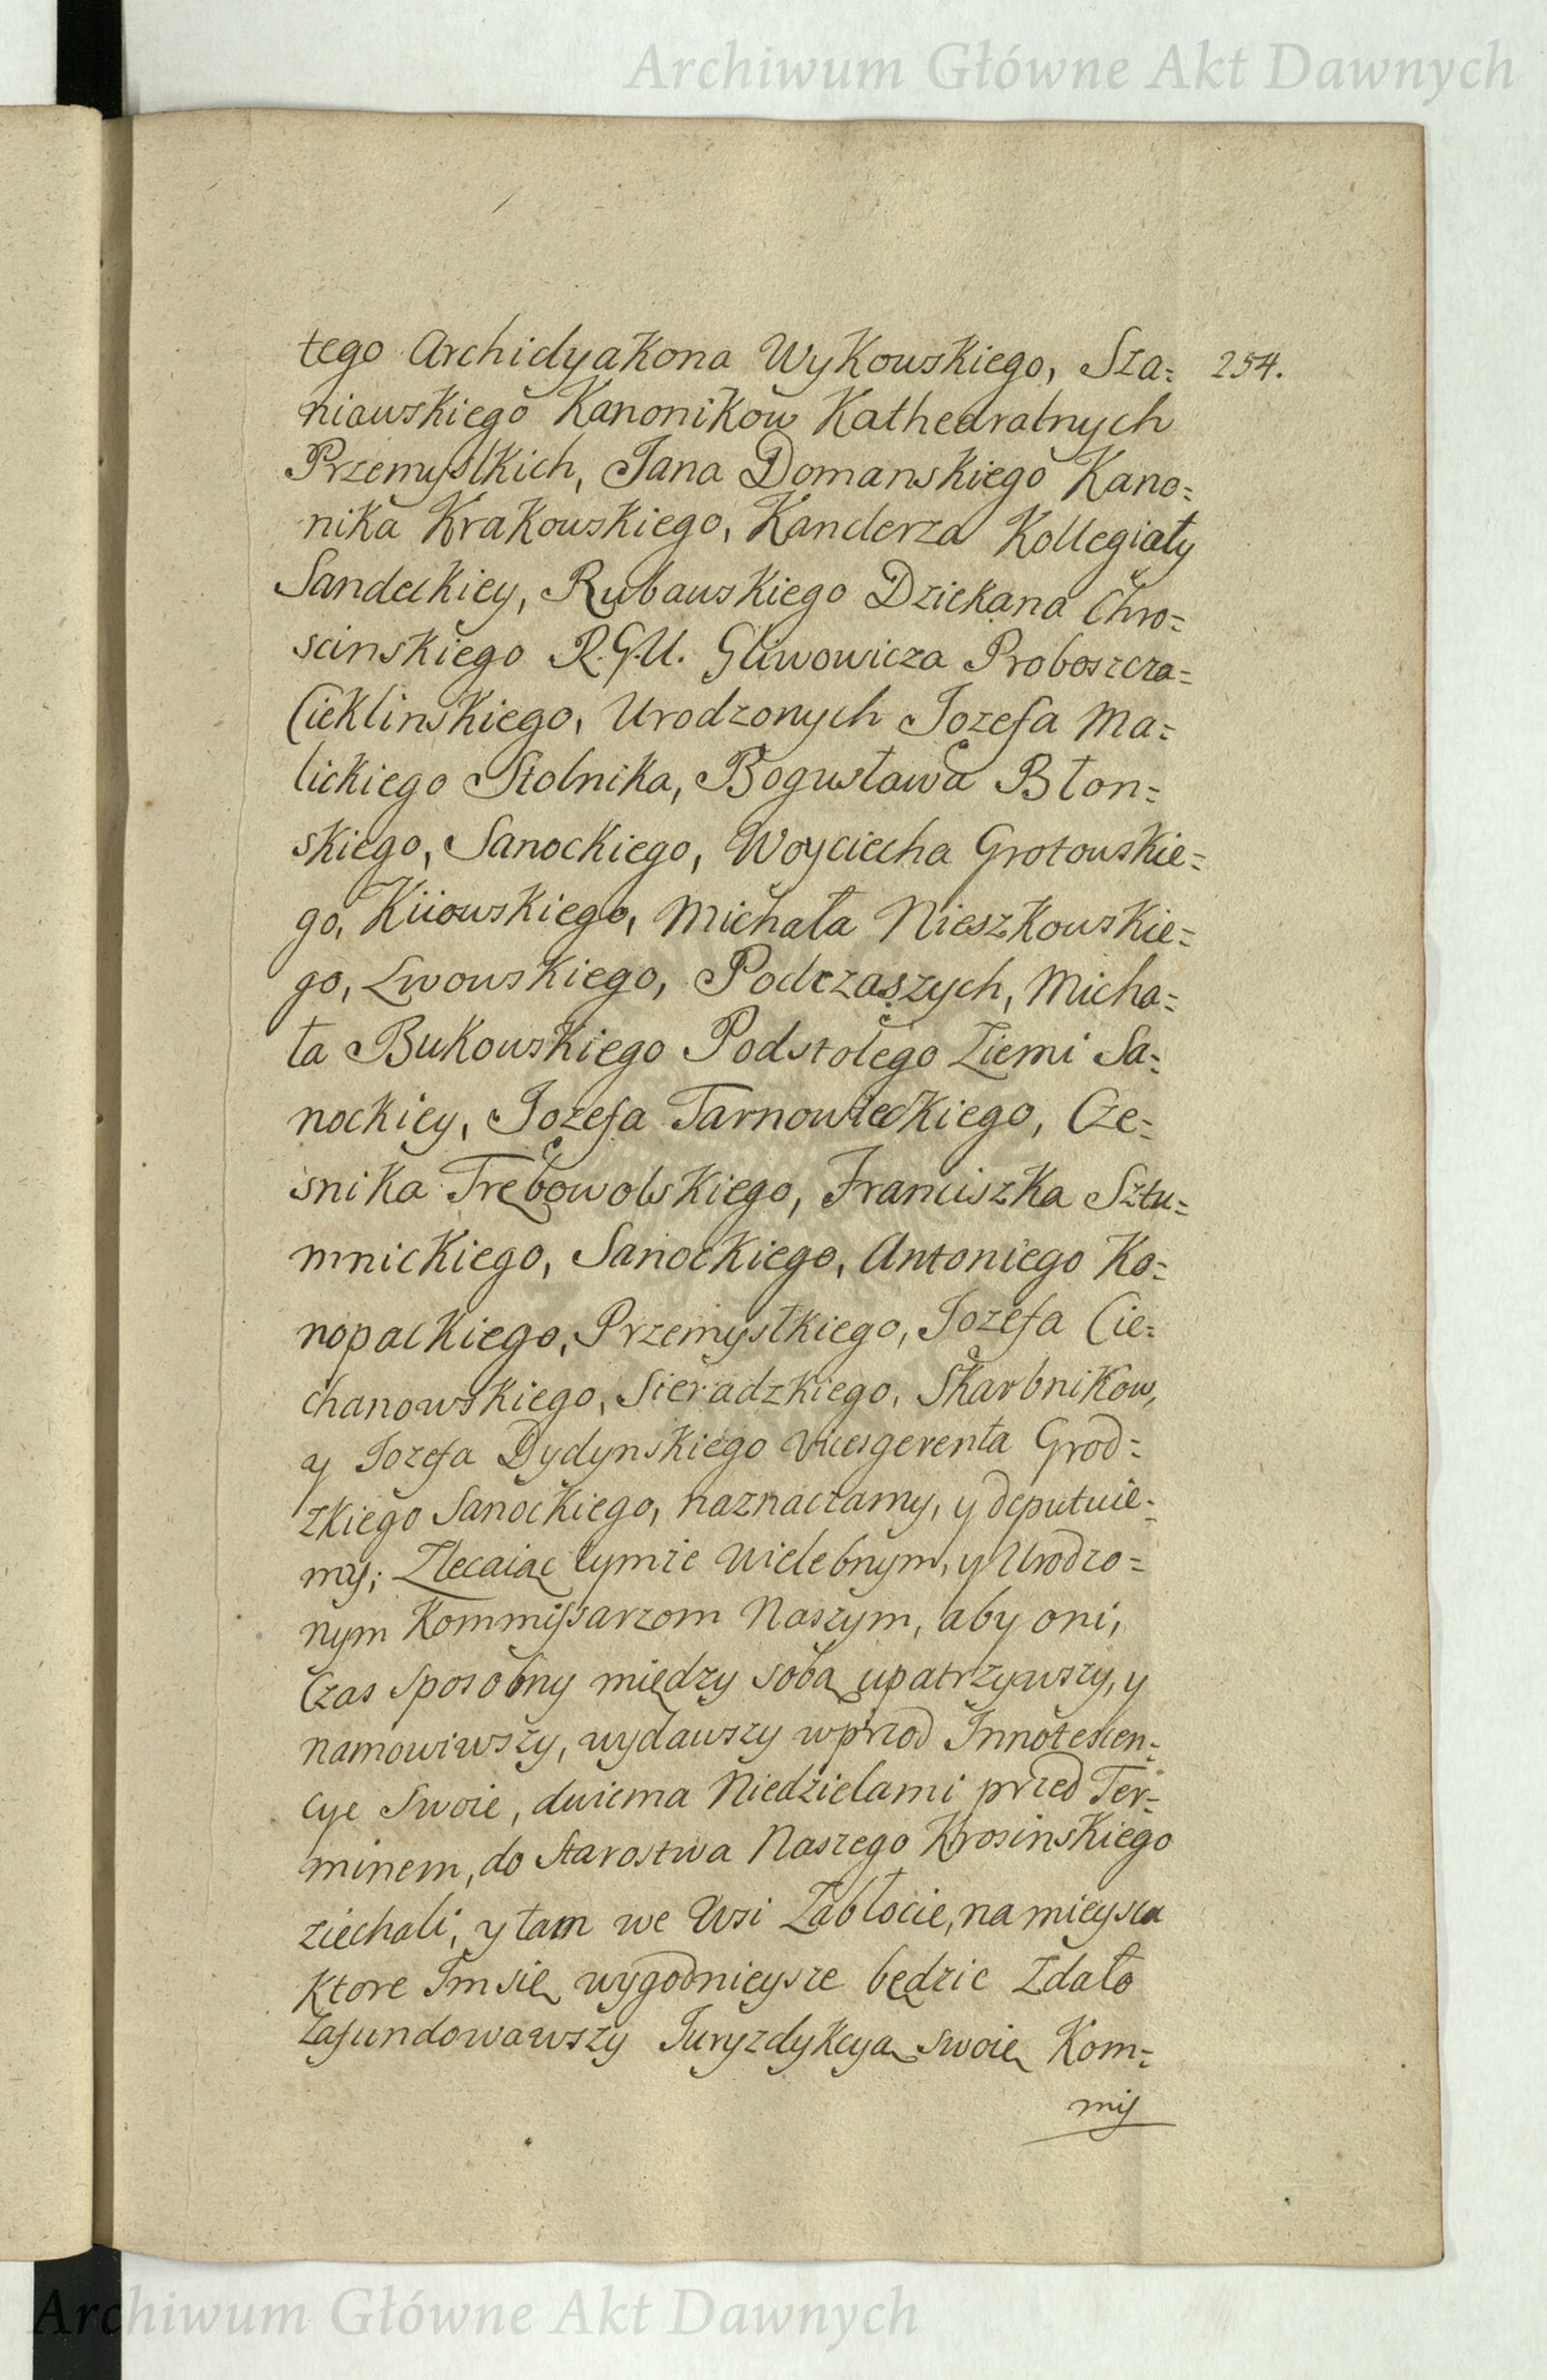 Archiwum Główne Akt Dawnych
tego Archidyakona Wykowskiego, Sta=
254.
niawskiego Kanonikow Kathedralnych
Przemyslkich, Jana Domanskiego Kano=
nika Krakowskiego, Kanclerza Kollegiaty
Sandeckiey, Rubawskiego Dziekana Chro=
scinskiego R.G.U. Gliwowicza Proboszcza=
Cieklinskiego, Urodzonych Jozefa Ma=
lickiego Stolnika, Bogusława Błon=
skiego, Sanockiego, Woyciecha Grotowskie=
go, Kiiowskiego, Michała Nieszkowskie=
go, Lwowskiego, Podczaszych, Micha=
ła Bukowskiego Podstolego Ziemi Sa=
nockiey, Jozefa Tarnowieckiego, Cze=
snika Trębowolskiego, Franciszka Sztu=
mnickiego, Sanockiego, Antoniego Ko=
nopackiego, Przemyslkiego, Jozefa Cie=
chanowskiego, Sieradzkiego, Skarbnikow,
y Jozefa Dydynskiego Vicesgerenta Grod=
zkiego Sanockiego, naznaczamy, y deputuie=
my; Zlecaiąc tymże Wielebnym, y Urodzo=
nym Kommissarzom Naszym, aby oni,
Czas sposobny między sobą upatrzywszy, y
namowiwszy, wydawszy wprzod Innotescen=
cye Swoie, dwiema Niedzielami przed Ter=
minem, do Starostwa Naszego Krosinskiego
ziechali, y tam we Wsi Zabłocie, na mieysca
ktore Im się wygodnieysze będzie Zdało
Zafundowawszy Juryzdykcyą swoię Kom=
mis
Archiwum Główne Akt Dawnych